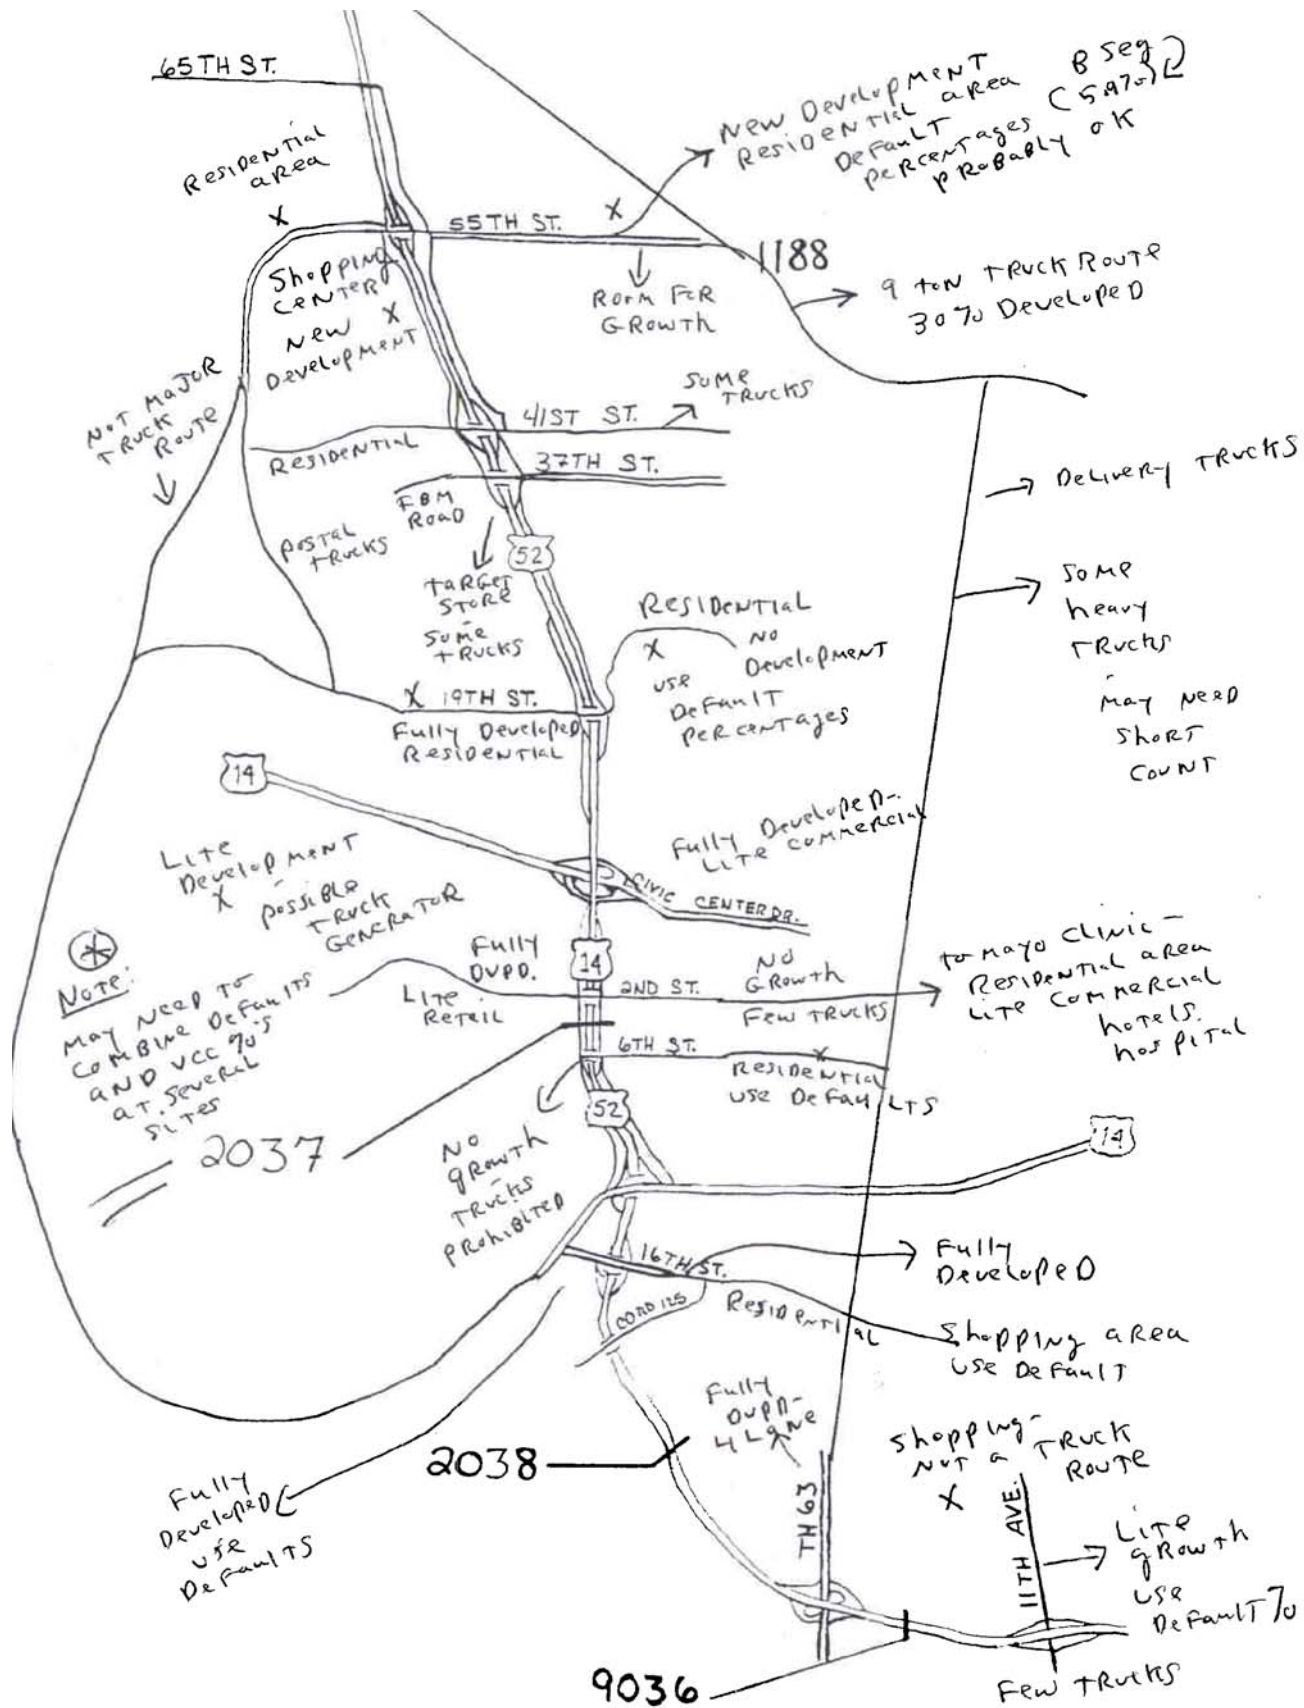 65TH ST.
Residential
area
X
New Development
Residential area
Default
percentages
probably OK
B Seg
(5.9%)
55TH ST.
X
1188
Shopping
Center
New X
Development
Room For
Growth
9 ton Truck Route
30% Developed
Not Major
Truck
Route
Some
Trucks
41ST ST.
Residential
37TH ST.
Delivery Trucks
Road
Postal
Trucks
52
Target
Store
-
Some
Trucks
Some
heavy
Trucks
-
May Need
Short
Count
Residential
X
No
Development
use
Default
percentages
X 19TH ST.
Fully Developed
Residential
14
Fully Developed-
Lite Commercial
Lite
Development
X
-
possible
Truck
Generator
CIVIC CENTER DR.
*
Note:
May Need to
Combine Defaults
and VCC %'s
at several
sites
Fully
DVPD.
Lite
Retail
14
2ND ST.
No
Growth
Few Trucks
to Mayo Clinic-
Residential area
Lite Commercial
hotels.
hospital
6TH ST.
X
Residential
use Defaults
52
2037
No
growth
-
Trucks
prohibited
14
16TH ST.
Fully
Developed
CO RD 125
Residential
Shopping area
use Default
Fully
DVPD-
4 Lane
2038
Shopping-
Not a Truck
Route
X
Fully
Developed
use
Defaults
TH 63
11TH AVE.
Lite
growth
use
Default %
9036
Few Trucks